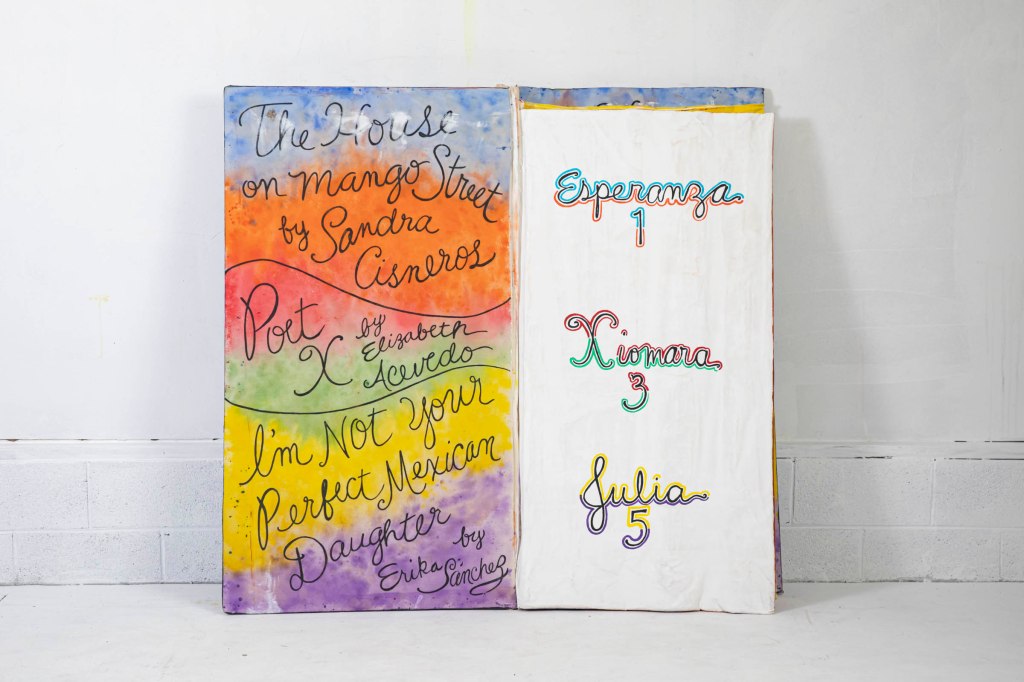 The House
on mango Street
by Sandra
Cisneros
Poet
X by
Elizabeth
Acevedo
I'm Not Your
Perfect Mexican
Daughter
by
Erika Sánchez
Esperanza
1
Xiomara
3
Julia
5